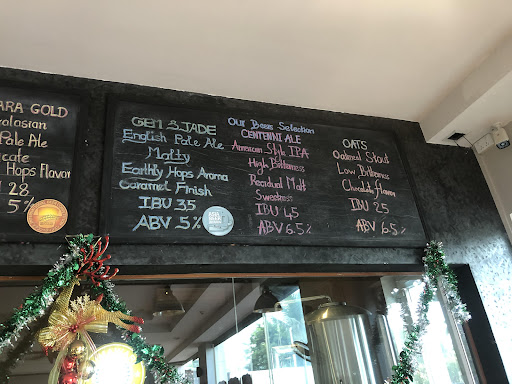 ARA GOLD
Pale Ale
Hops Flavor
28
5%
Our Beer Selection
GEM & JADE
English Pale Ale
Malty
Earthy Hops Aroma
Caramel Finish
IBU 35
ABV 5%
CENTENNI ALE
American Style IPA
High Bitterness
Residual Malt
Sweetness
IBU 45
ABV 6.5%
OATS
Oatmeal Stout
Low Bitterness
Chocolate flavor
IBU 25
ABV 6.5%